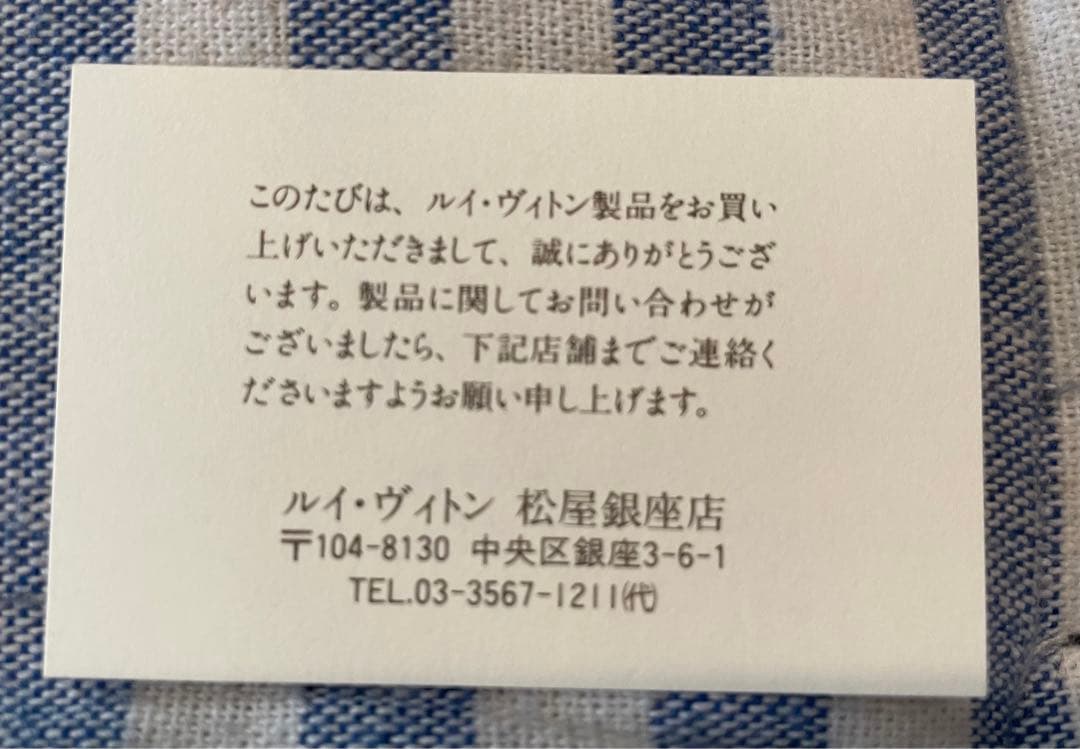 このたびは、ルイ・ヴィトン製品をお買い
上げいただきまして、誠にありがとうござ
います。製品に関してお問い合わせが
ございましたら、下記店舗までご連絡く
ださいますようお願い申し上げます。
ルイ・ヴィトン 松屋銀座店
〒104-8130 中央区銀座3-6-1
TEL.03-3567-1211㈹